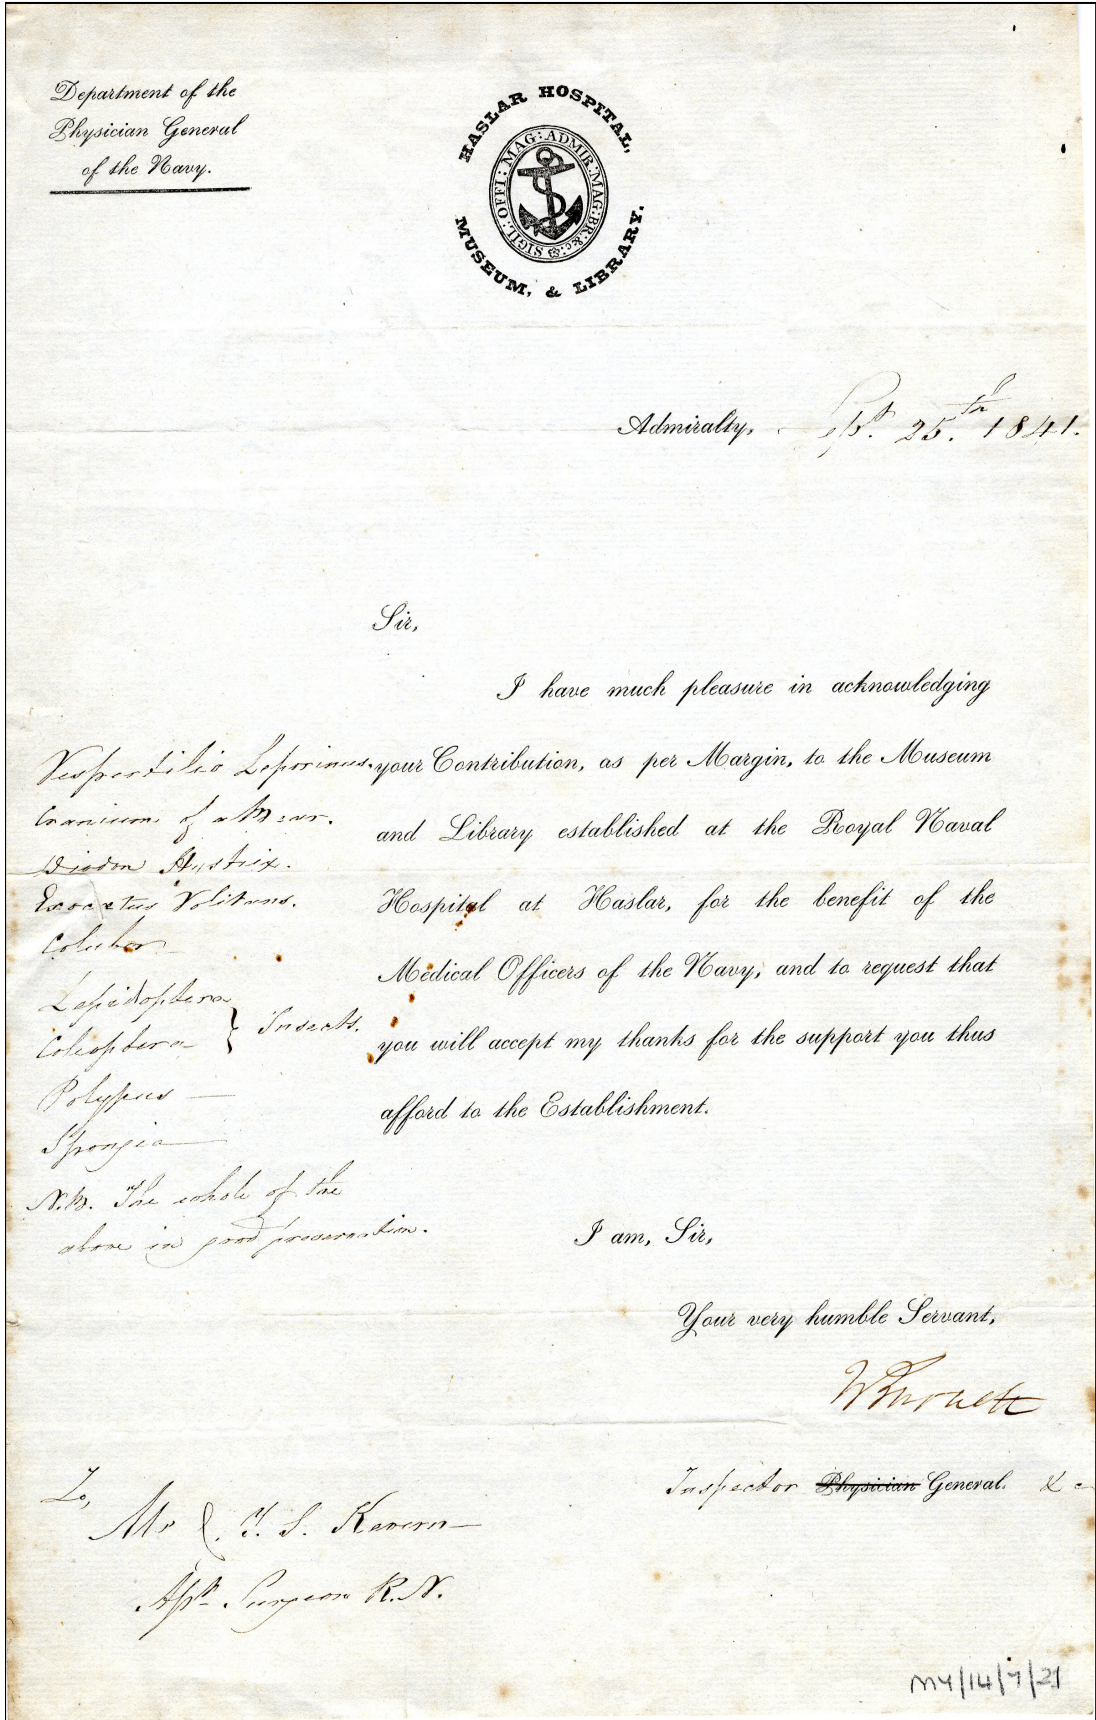 Department of the
Physician General
of the Navy.
HASLAR HOSPITAL,
MUSEUM, & LIBRARY.
SIGIL: OFFI: MAG: ADMIR: MAG: BR: &c:
Admiralty, Sept. 25.th 1841.
Sir,
I have much pleasure in acknowledging
your Contribution, as per Margin, to the Museum
and Library established at the Royal Naval
Hospital at Haslar, for the benefit of the
Medical Officers of the Navy, and to request that
you will accept my thanks for the support you thus
afford to the Establishment.
Vespertilio Leporinus.
Cranium of a Bear.
Diodon Hystrix.
Exocetus Volitans.
Coluber
Lepidoptera
Coleoptera } Insects.
Polypus
Spongia
N.B. The whole of the
above in good preservation.
I am, Sir,
Your very humble Servant,
WBurnett
Inspector Physician General. &c
To,
Mr T. S. Kavern
Asst. Surgeon R.N.
MY/14/7/21